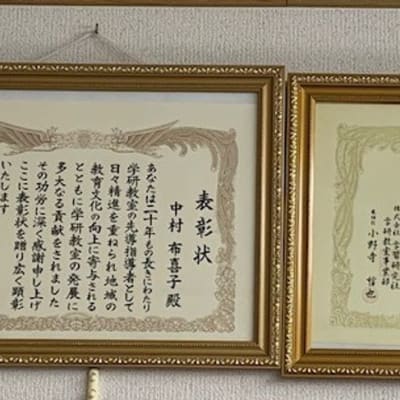 表彰状
中村 布喜子 殿
あなたは二十年もの長きにわたり
学研教室の先導指導者として
日々精進を重ねられ地域の
教育文化の向上に寄与される
とともに学研教室の発展に
多大なる貢献をされました
その功労に深く感謝申し上げ
ここに表彰状を贈り広く顕彰
いたします
株式会社 学習研究社
学研教室事業部
小野寺 信也